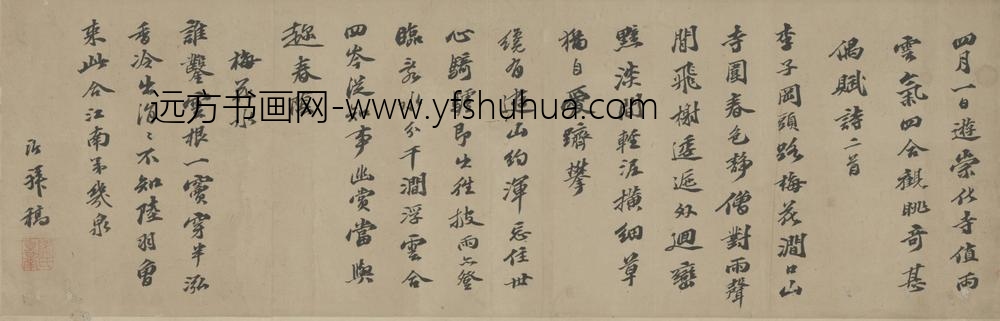 四月一日遊崇化寺值雨
雲氣四合觀眺奇甚
偶賦詩二首
李子岡頭路梅花澗口山
寺圍春色靜僧對雨聲
間飛榭透迤外迴巒
黯淡輕涯橫細草
猶自愛躋攀
有山約渾忘住世
心騎即出往披雨六登
臨分千澗浮雲合
四岑從事幽賞當與
趂春
梅花泉
誰鑿雲根一竇穿半泓
香冷出涓〻不知陸羽曾
來此合江南第幾泉
稿
远方书画网-www.yfshuhua.com